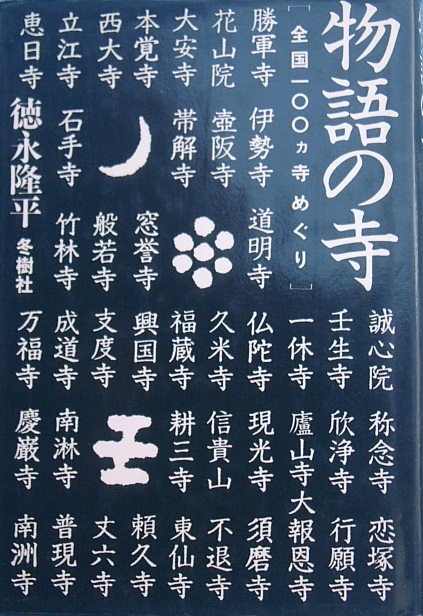 物語の寺
[全国一〇〇ヵ寺めぐり]
誠心院 称念寺 恋塚寺
壬生寺 欣浄寺 行願寺
一休寺 廬山寺 大報恩寺
勝軍寺 伊勢寺 道明寺 仏陀寺 現光寺 須磨寺
花山院 壺阪寺 久米寺 信貴山 不退寺
大安寺 帯解寺 福蔵寺 耕三寺 東仙寺
本覚寺 窓誉寺 興国寺 頼久寺
西大寺 般若寺 支度寺 丈六寺
立江寺 石手寺 竹林寺 成道寺 南淋寺 普現寺
恵日寺
徳永隆平
冬樹社
万福寺 慶巌寺 南洲寺